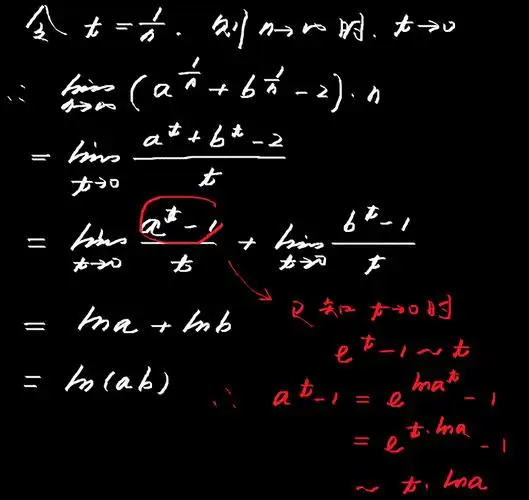 令 t = 1/n. 则 n→∞ 时. t→0
∴ lim n→∞ (a^(1/n) + b^(1/n) - 2)·n
= lim t→0 (a^t + b^t - 2)/t
= lim t→0 (a^t - 1)/t + lim t→0 (b^t - 1)/t
= lna + lnb
= ln(ab)
已知 t→0时
e^t - 1 ~ t
∴ a^t - 1 = e^(lna^t) - 1
= e^(t·lna) - 1
~ t·lna